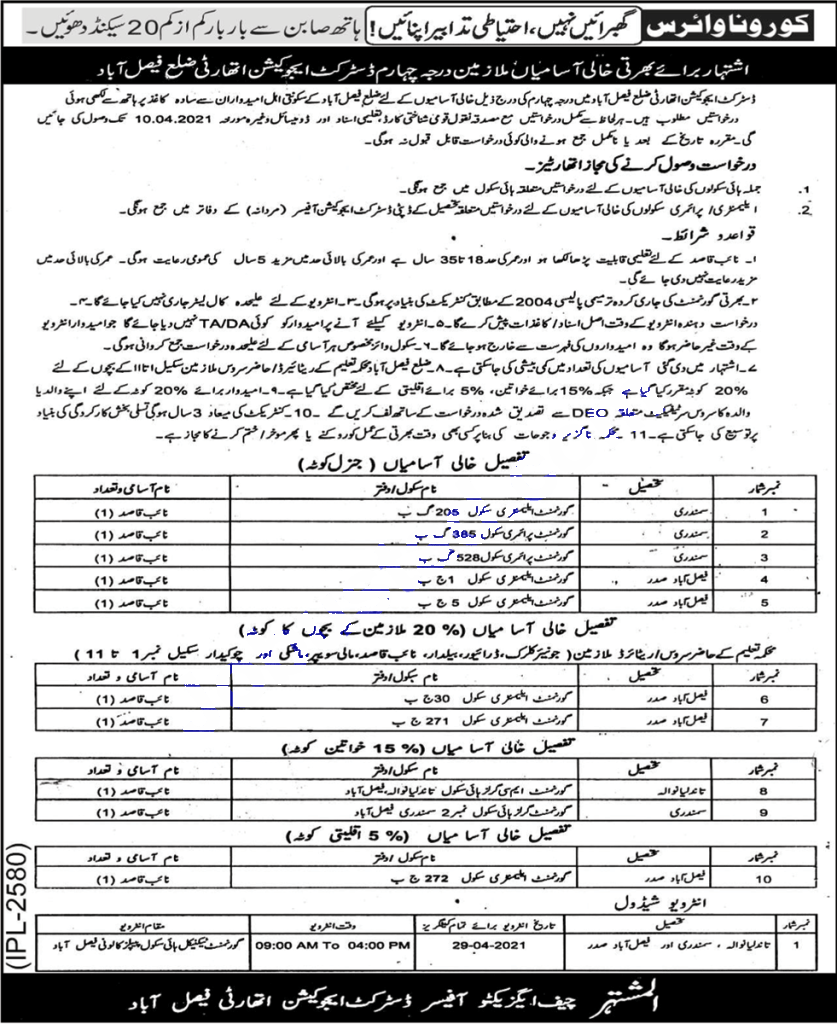 کورونا وائرس گھبرائیں نہیں، احتیاطی تدابیر اپنائیں! ہاتھ صابن سے بار بار کم از کم 20 سیکنڈ دھوئیں۔
اشتہار برائے بھرتی خالی آسامیاں ملازمین درجہ چہارم ڈسٹرکٹ ایجوکیشن اتھارٹی ضلع فیصل آباد
ڈسٹرکٹ ایجوکیشن اتھارٹی ضلع فیصل آباد میں درجہ چہارم کی درج ذیل خالی آسامیوں کے لئے ضلع فیصل آباد کے سکونتی اہل امیدواران سے سادہ کاغذ پر ہاتھ سے لکھی ہوئی
درخواستیں مطلوب ہیں۔ ہر لحاظ سے مکمل درخواستیں مع مصدقہ نقول قومی شناختی کارڈ تعلیمی اسناد اور ڈومیسائل وغیرہ مورخہ 10.04.2021 تک وصول کی جائیں
گی۔ مقررہ تاریخ کے بعد یا نامکمل جمع ہونے والی کوئی درخواست قابل قبول نہ ہوگی۔
درخواست وصول کرنے کی مجاز اتھارٹیز۔
1. جملہ ہائی سکولوں کی خالی آسامیوں کے لئے درخواستیں متعلقہ ہائی سکول میں جمع ہوگی۔
2. ایلیمنٹری/ پرائمری سکولوں کی خالی آسامیوں کے لئے درخواستیں متعلقہ تحصیل کے ڈپٹی ڈسٹرکٹ ایجوکیشن آفیسر (مردانہ) کے دفاتر میں جمع ہونگی۔
قواعد و شرائط۔
۱۔ نائب قاصد کے لئے تعلیمی قابلیت پڑھا لکھا ہو اور عمر کی حد 18 تا 35 سال ہے اور عمر کی بالائی حد میں مزید 5 سال کی عمومی رعایت ہوگی۔ عمر کی بالائی حد میں
مزید رعایت نہیں دی جائے گی۔
۲۔ بھرتی گورنمنٹ کی جاری کردہ ترمیمی پالیسی 2004 کے مطابق کنٹریکٹ کی بنیاد پر ہوگی۔ ۳۔ انٹرویو کے لئے علیحدہ کال لیٹر جاری نہیں کیا جائے گا۔ ۴۔
درخواست دہندہ انٹرویو کے وقت اصل اسناد/ کاغذات پیش کرے گا۔ ۵۔ انٹرویو کیلئے آنے پر امیدوار کو کوئی TA/DA نہیں دیا جائے گا جو امیدوار انٹرویو
کے وقت غیر حاضر ہوگا وہ امیدواروں کی فہرست سے خارج ہو جائے گا۔ ۶۔ سکول وائز مخصوص ہر آسامی کے لئے علیحدہ درخواست جمع کروانی ہوگی۔
۷۔ اشتہار میں دی گئی آسامیوں کی تعداد میں کمی بیشی کی جاسکتی ہے۔ ۸۔ ضلع فیصل آباد محکمہ تعلیم کے ریٹائرڈ/ حاضر سروس ملازمین سکیل ۱ تا ۱۱ کے بچوں کے لئے
20% کوٹہ مقرر کیا گیا ہے جبکہ 15% برائے خواتین، 5% برائے اقلیتی کے لئے مختص کیا گیا ہے۔ ۹۔ امیدوار برائے 20% کوٹہ کے لئے اپنے والد یا
والدہ کا سروس سرٹیفکیٹ متعلقہ DEO سے تصدیق شدہ درخواست کے ساتھ لف کریں گے ۔ 10۔ کنٹریکٹ کی میعاد 3 سال ہوگی تسلی بخش کارکردگی کی بنیاد
پر توسیع کی جاسکتی ہے۔ 11۔ محکمہ ناگزیر وجوہات کی بنا پر کسی بھی وقت بھرتی کے عمل کو روکنے یا پھر موخر/ ختم کرنے کا مجاز ہے۔
تفصیل خالی آسامیاں (جنرل کوٹہ)
نمبر شمار تحصیل نام سکول/دفتر نام آسامی و تعداد
1 سمندری گورنمنٹ ایلیمنٹری سکول 205 گ ب نائب قاصد (1)
2 سمندری گورنمنٹ پرائمری سکول 385 گ ب نائب قاصد (1)
3 سمندری گورنمنٹ پرائمری سکول 528 گ ب نائب قاصد (1)
4 فیصل آباد صدر گورنمنٹ ایلیمنٹری سکول 1 ج ب نائب قاصد (1)
5 فیصل آباد صدر گورنمنٹ ایلیمنٹری سکول 5 ج ب نائب قاصد (1)
تفصیل خالی آسامیاں (20 % ملازمین کے بچوں کا کوٹہ)
محکمہ تعلیم کے حاضر سروس/ریٹائرڈ ملازمین (جونیئر کلرک، ڈرائیور، بیلدار، نائب قاصد، مالی سویپر، ماشکی اور چوکیدار سکیل نمبر 1 تا 11)
نمبر شمار تحصیل نام سکول/دفتر نام آسامی و تعداد
6 فیصل آباد صدر گورنمنٹ ایلیمنٹری سکول 30 ج ب نائب قاصد (1)
7 فیصل آباد صدر گورنمنٹ ایلیمنٹری سکول 271 ج ب نائب قاصد (1)
تفصیل خالی آسامیاں (15 % خواتین کوٹہ)
نمبر شمار تحصیل نام سکول/دفتر نام آسامی و تعداد
8 تاندلیانوالہ گورنمنٹ ایم سی گرلز ہائی سکول تاندلیانوالہ فیصل آباد نائب قاصد (1)
9 سمندری گورنمنٹ گرلز ہائی سکول نمبر 2 سمندری فیصل آباد نائب قاصد (1)
تفصیل خالی آسامیاں (5 % اقلیتی کوٹہ)
نمبر شمار تحصیل نام سکول/دفتر نام آسامی و تعداد
10 فیصل آباد صدر گورنمنٹ ایلیمنٹری سکول 272 ج ب نائب قاصد (1)
انٹرویو شیڈول
نمبر شمار تحصیل تاریخ انٹرویو برائے تمام کیٹگریز وقت انٹرویو مقام انٹرویو
1 تاندلیانوالہ، سمندری اور فیصل آباد صدر 29-04-2021 09:00 AM To 04:00 PM گورنمنٹ ٹیکنیکل ہائی سکول پیپلز کالونی فیصل آباد
(IPL-2580)
المشتہر چیف ایگزیکٹو آفیسر ڈسٹرکٹ ایجوکیشن اتھارٹی فیصل آباد